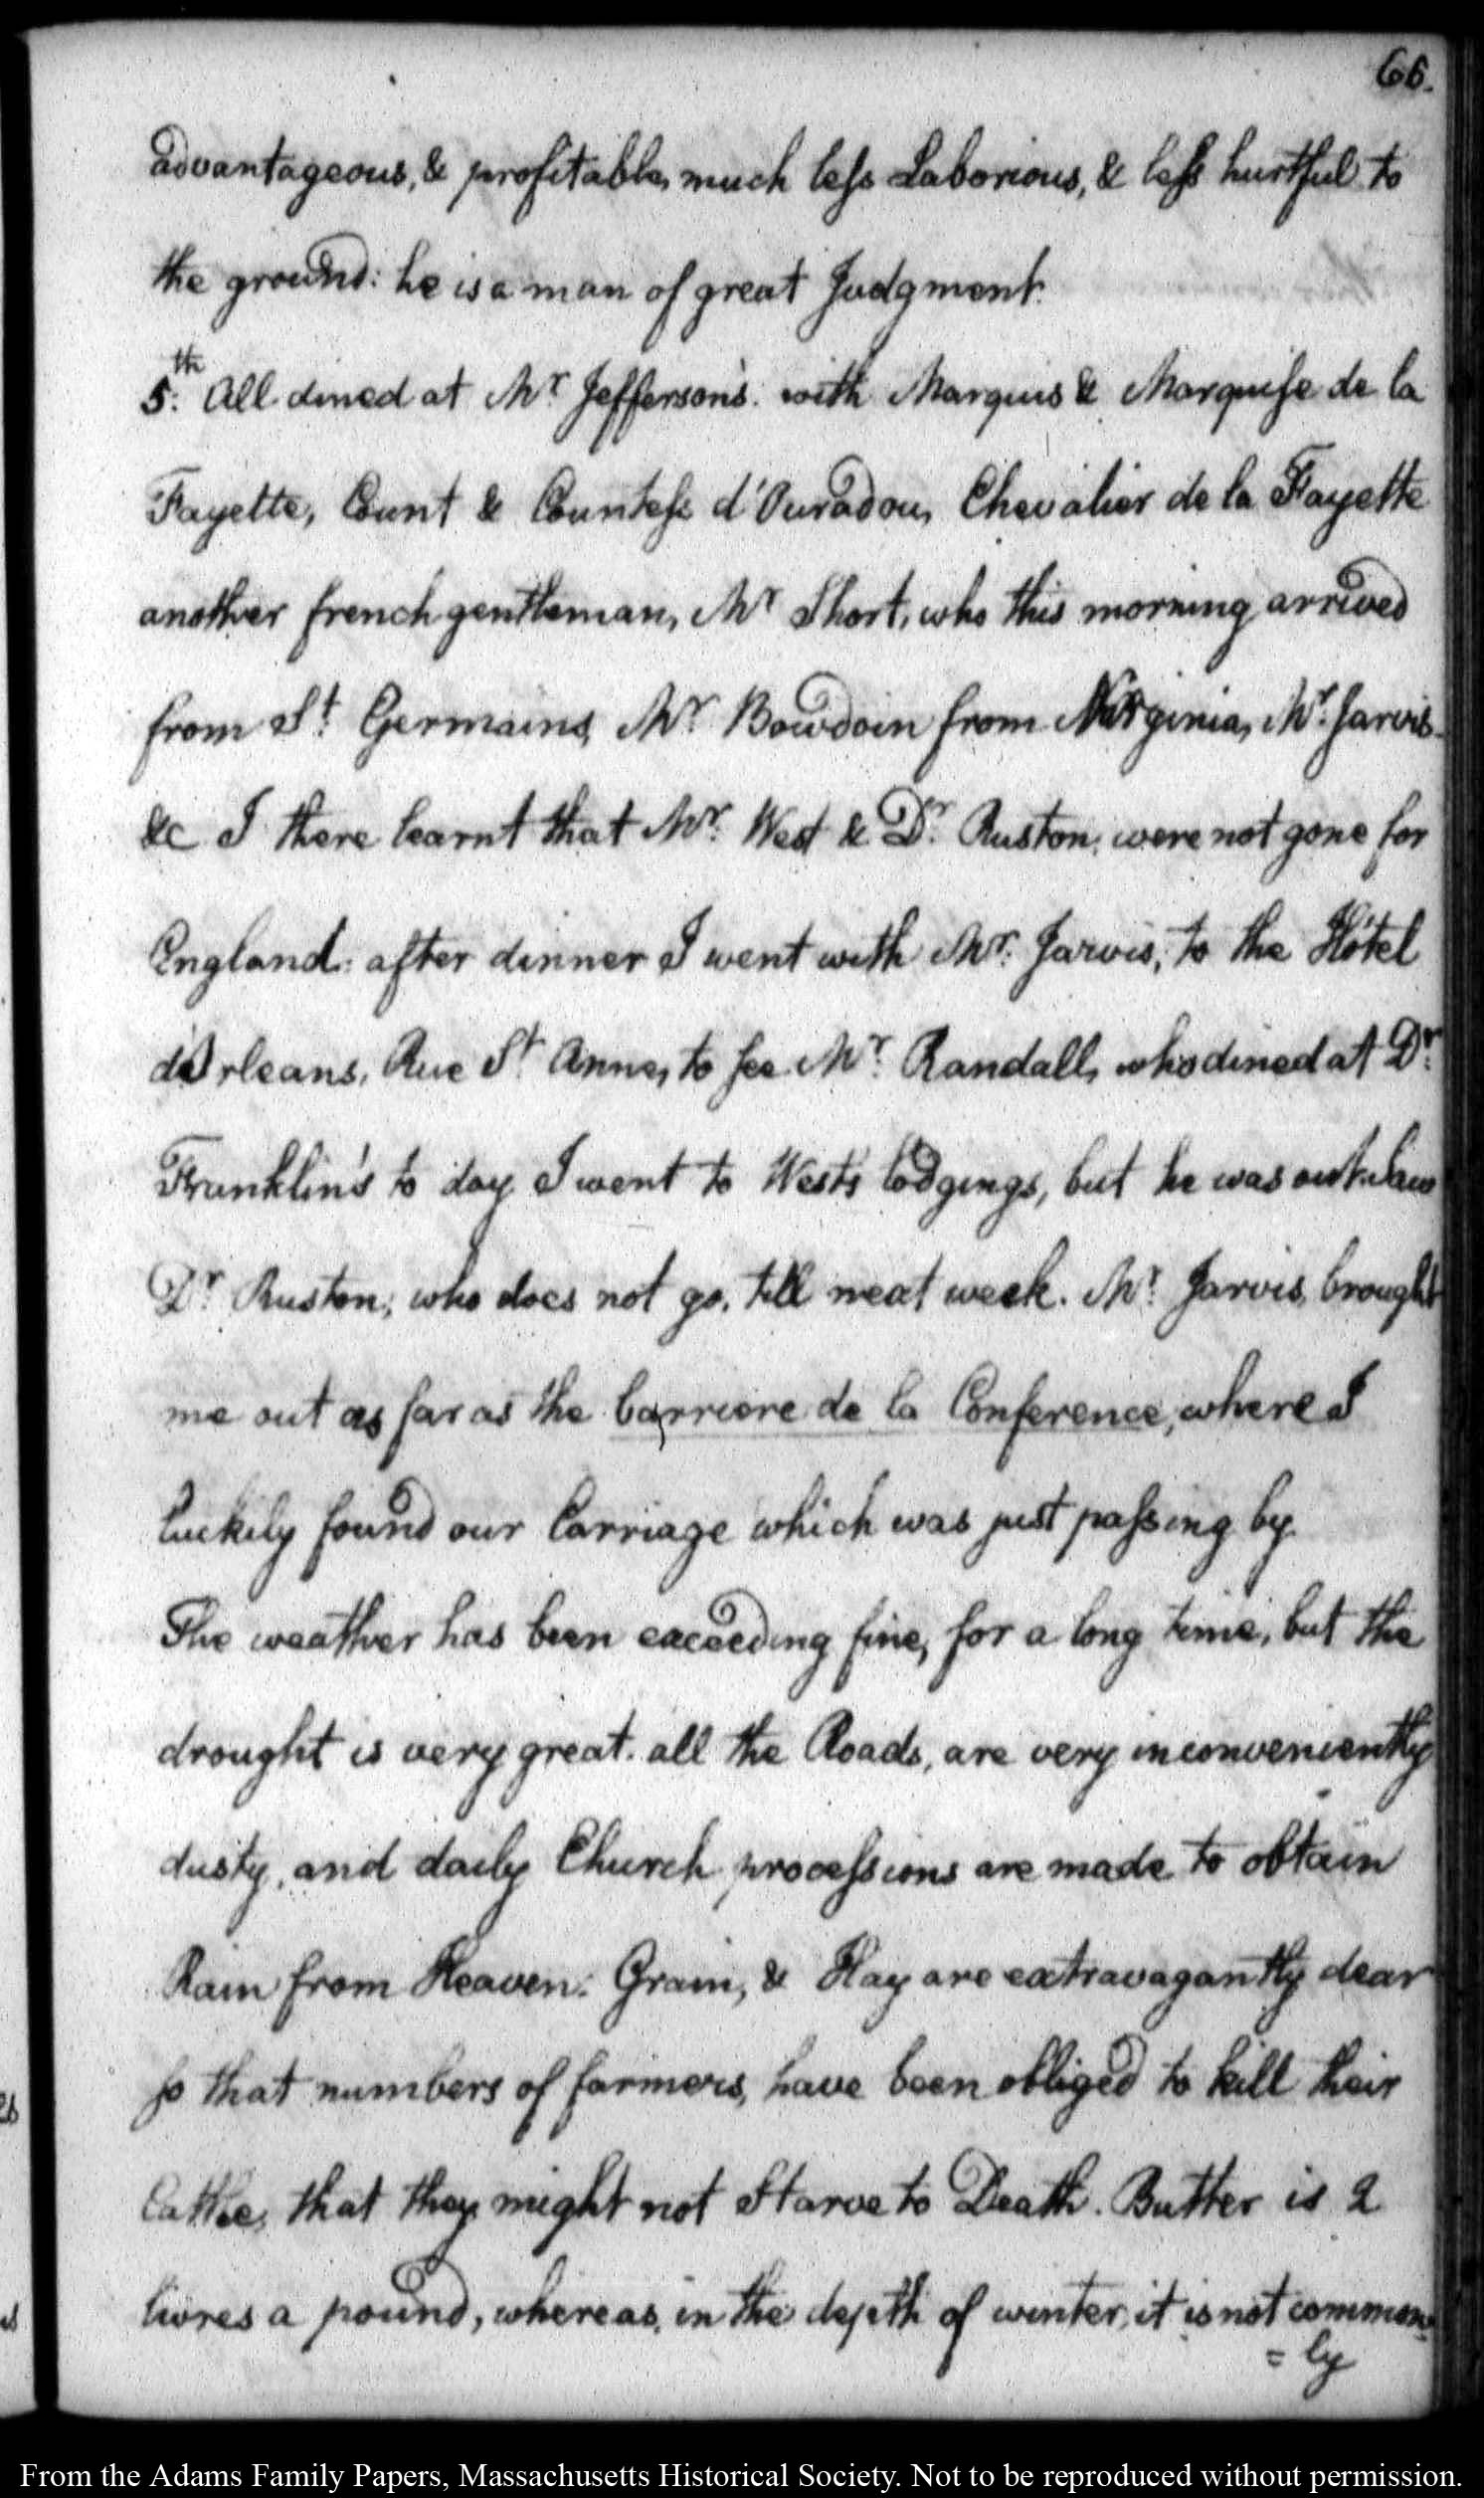 66.
advantageous, & profitable, much less Laborious, & less hurtful to
the ground: he is a man of great Judgment.
5.th All dined at Mr Jefferson's. with Marquis & Marquise de la
Fayette, Count & Countess d'Ouradou, Chevalier de la Fayette
another french gentleman, Mr Short, who this morning arrived
from St. Germains, Mr. Bowdoin from Virginia, Mr. Jarvis
&c I there learnt that Mr. West & Dr. Ruston, were not gone for
England. after dinner I went with Mr. Jarvis, to the Hôtel
d'Orleans, Rue St. Anne, to see Mr. Randall, who dined at Dr.
Franklin's to day I went to Wests lodgings, but he was out. saw
Dr Ruston, who does not go, till next week. Mr. Jarvis, brought
me out as far as the barriere de la Conference, where I
luckily found our Carriage which was just passing by.
The weather has been exceeding fine, for a long time, but the
drought is very great. all the Roads, are very inconveniently
dusty, and daily Church processions are made to obtain
Rain from Heaven. Grain, & Hay are extravagantly dear
so that numbers of farmers, have been obliged to kill their
Cattle, that they might not Starve to Death. Butter is 2
livres a pound, whereas, in the depth of winter, it is not common
=ly
From the Adams Family Papers, Massachusetts Historical Society. Not to be reproduced without permission.